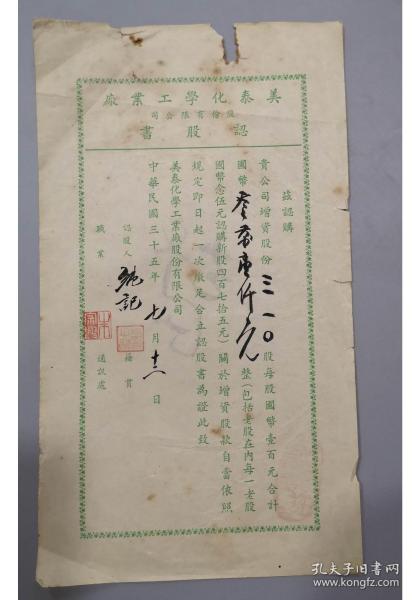 美泰化學工業廠
股份有限公司
認股書
茲認購
貴公司增資股份三一〇股每股國幣壹百元合計
國幣叁萬壹仟元整（包括老股在內每一老股
國幣念伍元認購新股四百七拾五元）關於增資股款自當依照
規定即日起一次繳足合立認股書為證此致
美泰化學工業廠股份有限公司
中華民國三十五年七月十六日
認股人 記 籍貫
職業 通訊處
孔夫子旧书网
www.kongfz.com